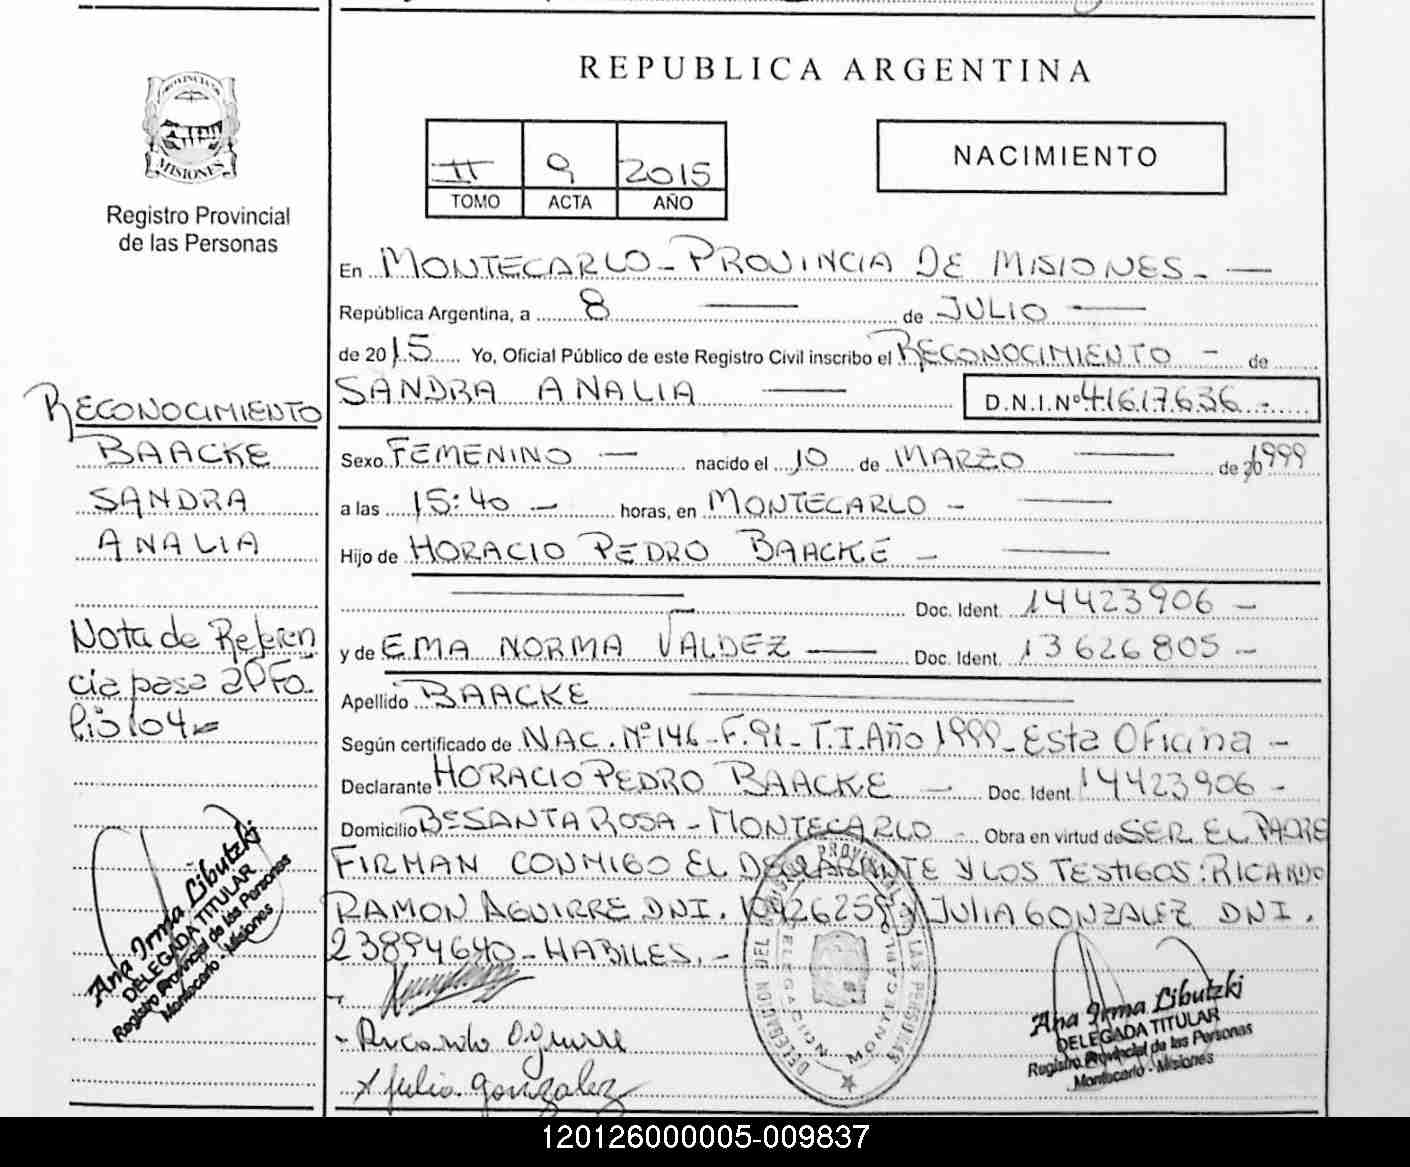 REPUBLICA ARGENTINA
PROVINCIA
MISIONES
Registro Provincial
de las Personas
II 9 2015
TOMO ACTA AÑO
NACIMIENTO
En MONTECARLO - PROVINCIA DE MISIONES. —
República Argentina, a 8 — de JULIO —
de 2015 Yo, Oficial Público de este Registro Civil inscribo el RECONOCIMIENTO - de
SANDRA ANALIA — D.N.I.Nº 41617636 -
Sexo FEMENINO — nacido el 10 de MARZO — de 20 1999
a las 15:40 — horas, en MONTECARLO - —
Hijo de HORACIO PEDRO BAACKE - —
— Doc. Ident. 14423906 —
y de EMA NORMA VALDEZ — Doc. Ident. 13626805 —
Apellido BAACKE —
Según certificado de NAC. Nº 146 - F. 91 - T. I. Año 1999 - Esta Oficina -
Declarante HORACIO PEDRO BAACKE - Doc. Ident. 14423906 -
Domicilio Bº SANTA ROSA - MONTECARLO - Obra en virtud de SER EL PADRE
FIRMAN CONMIGO EL DECLARANTE Y LOS TESTIGOS: RICARDO
RAMON AGUIRRE DNI. Y JULIA GONZALEZ DNI.
23894640 - HABILES. -
Ricardo Aguirre
x Julia Gonzalez
RECONOCIMIENTO
BAACKE
SANDRA
ANALIA
Nota de Referen
cia pasa al Fo.
104
Ana Irma Libutzki
DELEGADA TITULAR
Registro Provincial de las Personas
Montecarlo - Misiones
DELEGACION MONTECARLO
Ana Irma Libutzki
DELEGADA TITULAR
Registro Provincial de las Personas
Montecarlo - Misiones
120126000005-009837